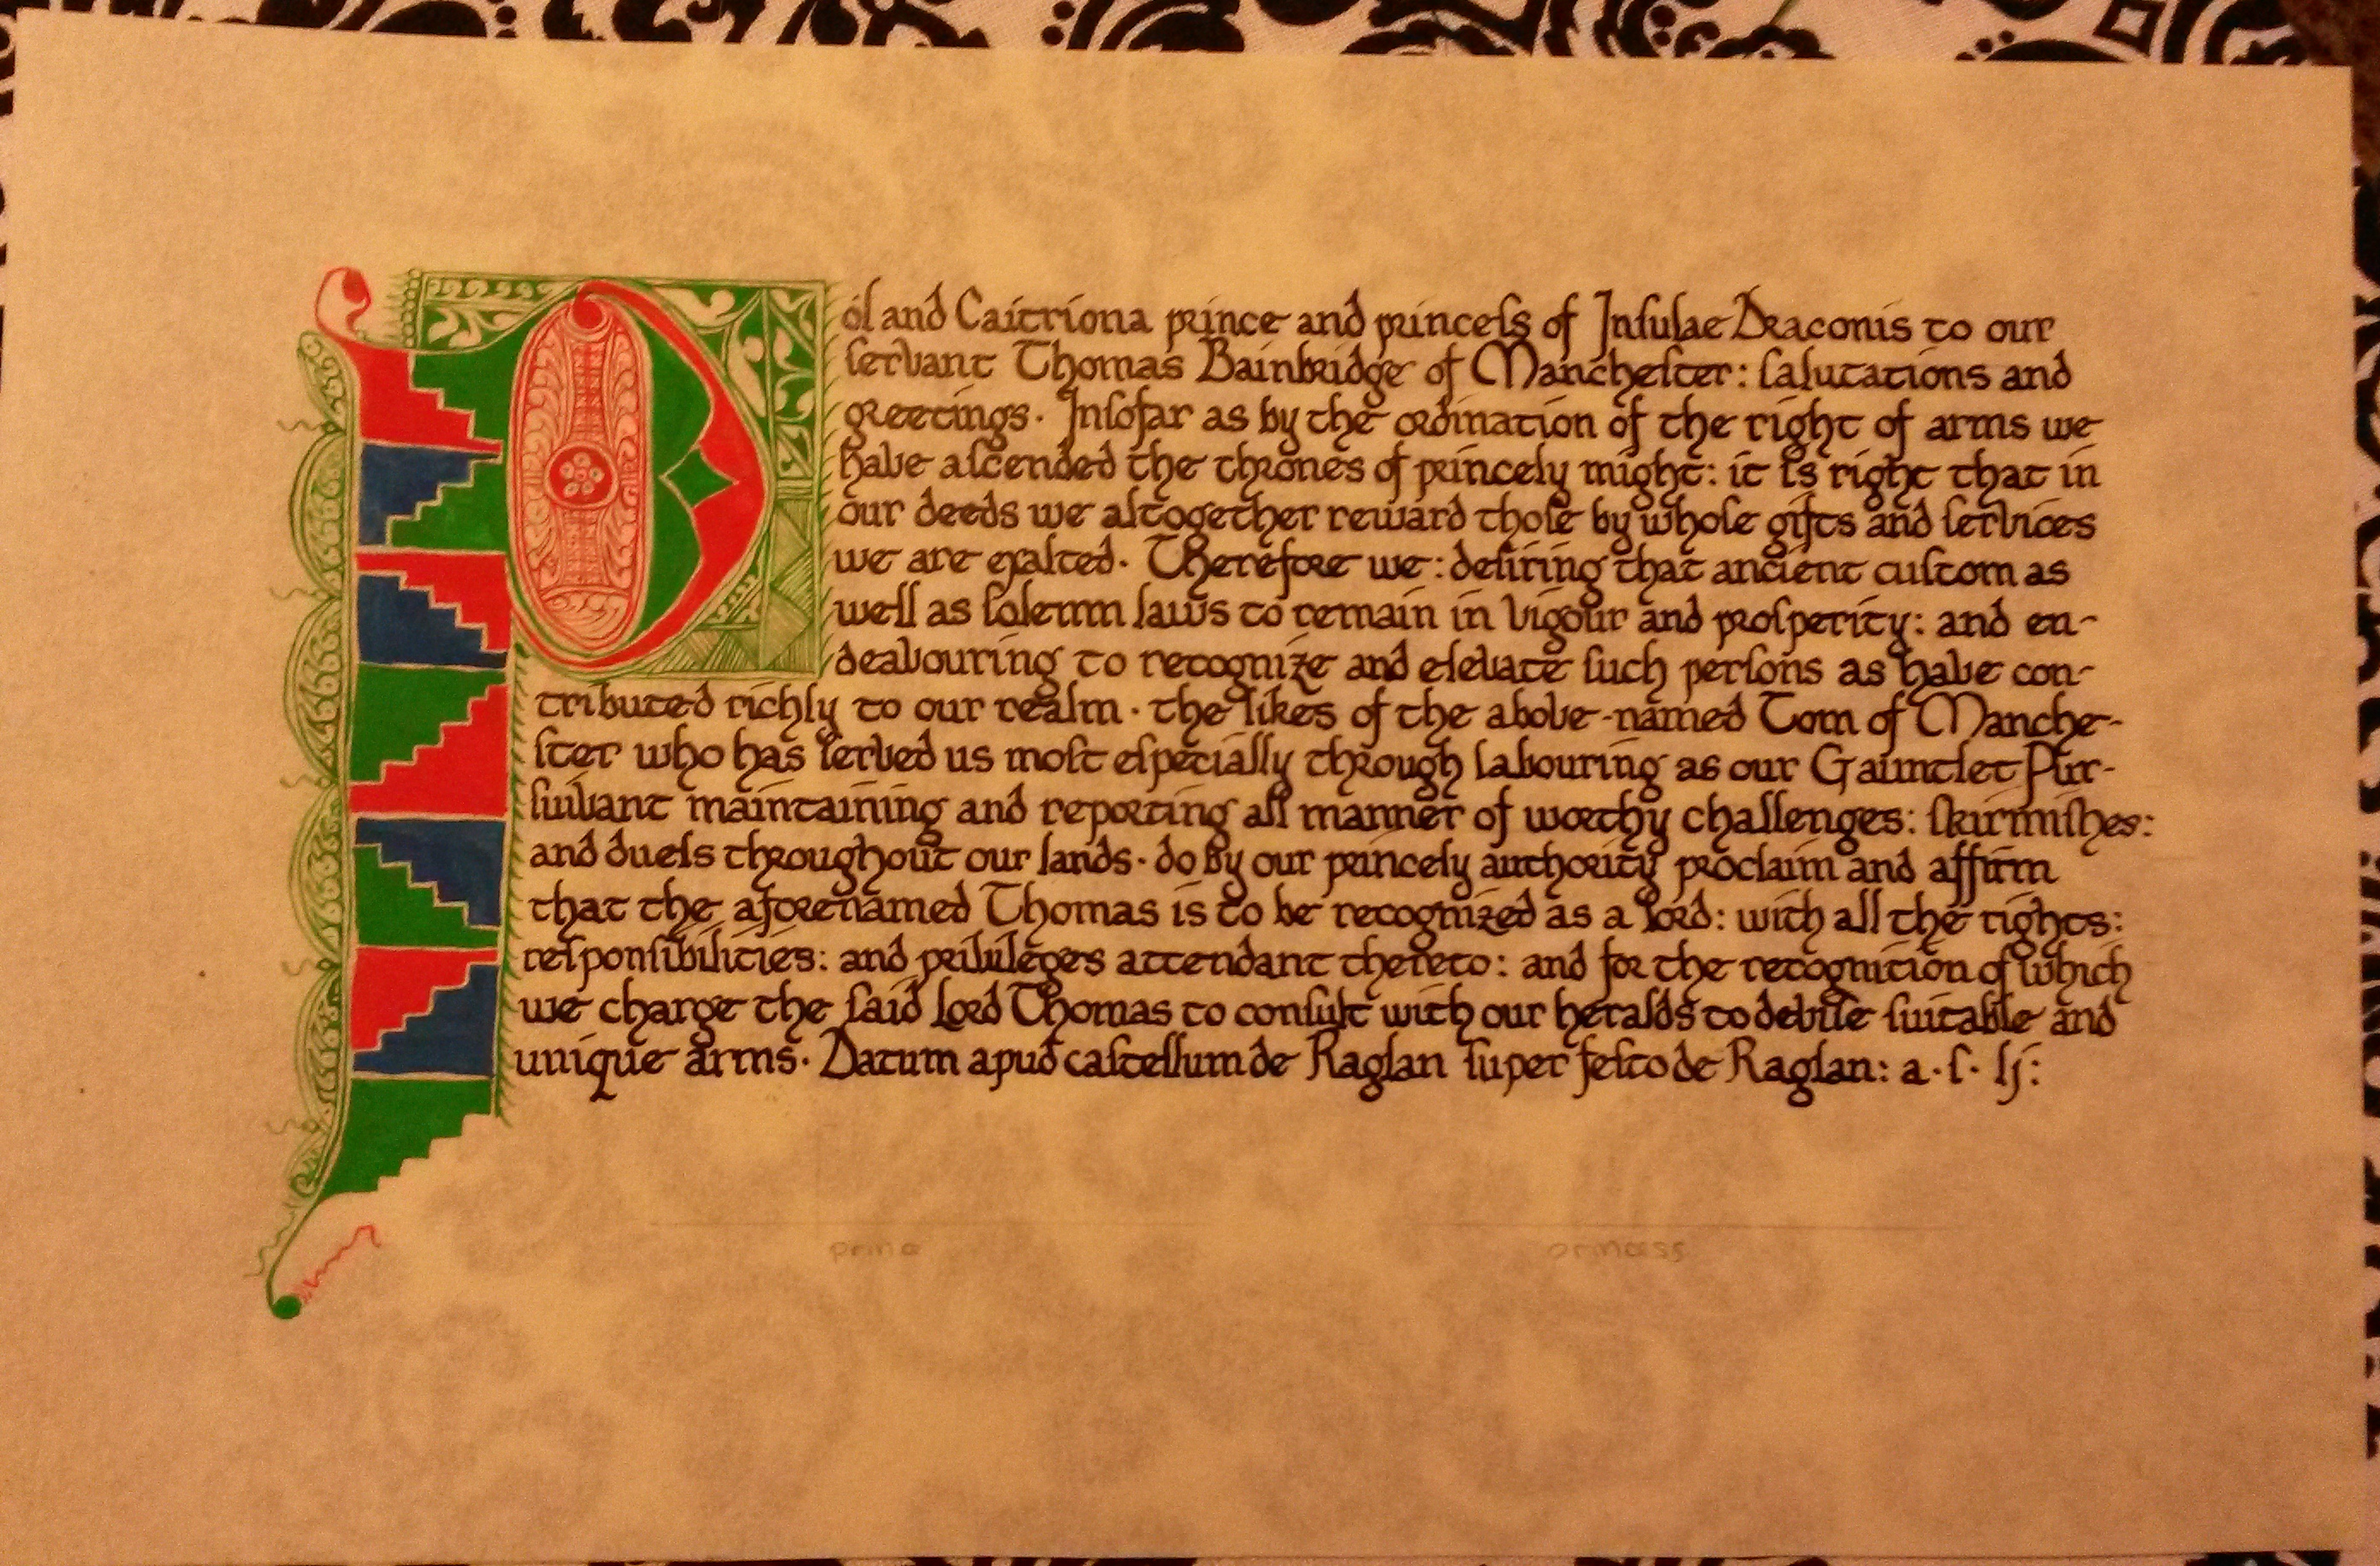 Pól and Caitríona prince and princeſs of Inſulae Draconis to our
ſervant Thomas Bainbridge of Mancheſter: ſalutations and
greetings. Inſofar as by the ordination of the right of arms we
have aſcended the thrones of princely might: it is right that in
our deeds we altogether reward thoſe by whoſe gifts and ſervices
we are exalted. Therefore we: deſiring that ancient cuſtom as
well as ſolemn laws to remain in vigour and proſperity: and en-
deavouring to recognize and elevate ſuch perſons as have con-
tributed richly to our realm · the likes of the above-named Tom of Manche-
ſter who has ſerved us moſt eſpecially through labouring as our Gauntlet Pur-
ſuivant maintaining and reporting all manner of worthy challenges: ſkirmiſhes:
and duels throughout our lands · do by our princely authority proclaim and affirm
that the aforenamed Thomas is to be recognized as a lord: with all the rights:
reſponſibilities: and privileges attendant thereto: and for the recognition of which
we charge the ſaid Lord Thomas to conſult with our heralds to deviſe ſuitable and
unique arms. Datum apud caſtellum de Raglan ſuper feſto de Raglan: a · ſ · lj:
prince princess